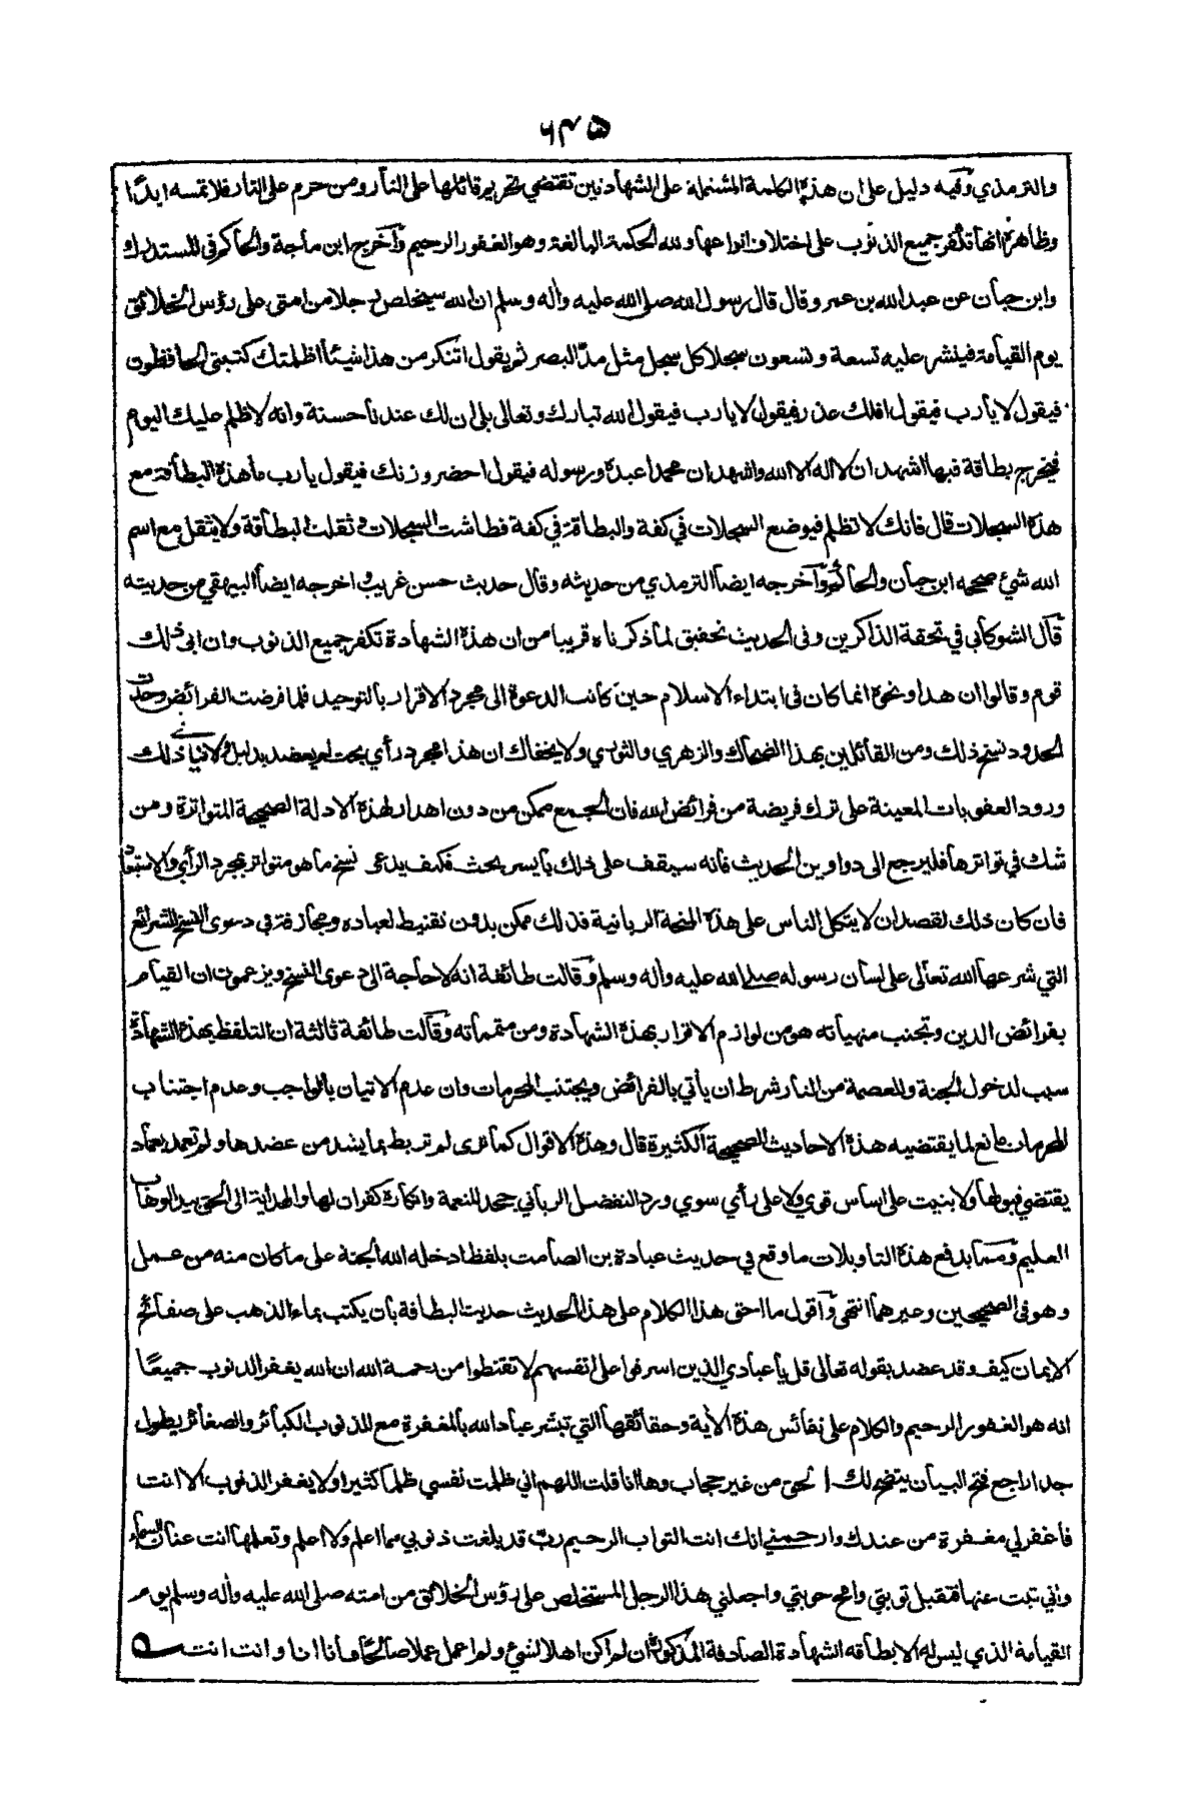 ٦٤٥
والترمذي وفيه دليل على ان هذه الكلمة المشتملة على الشهادتين تقتضي تحريم قائلها على النار ومن حرم على النار فلا تمسه ابدًا
وظاهره انها تكفر جميع الذنوب على اختلاف انواعها ولله الحكمة البالغة وهو الغفور الرحيم وآخرج ابن ماجة والحاكم في المستدرك
وابن حبان عن عبد الله بن عمرو قال قال رسول الله صلى الله عليه وأله وسلم ان الله سيخلص رجلا من امتي على رؤس الخلائق
يوم القيامة فينشر عليه تسعة وتسعون سجلا كل سجل مثل مدّ البصر ثم يقول اتنكر من هذا شيئا أظلمتك كتبتي الحافظون
فيقول لا يارب فيقول افلك عذر فيقول لا يارب فيقول الله تبارك وتعالى بلى ان لك عندنا حسنة وانه لا ظلم عليك اليوم
فيخرج بطاقة فيها اشهد ان لا اله الا الله واشهد ان محمدا عبده ورسوله فيقول احضر وزنك فيقول يارب ما هذه البطاقة مع
هذه السجلات قال فانك لا تظلم فيوضع السجلات في كفة والبطاقة في كفة فطاشت السجلات و ثقلت البطاقة ولا يثقل مع اسم
الله شئ صححه ابن حبان والحاكم وآخرجه ايضا الترمذي من حديثه وقال حديث حسن غريب واخرجه ايضا البيهقي من حديثه
قال الشوكاني في تحفة الذاكرين وفي الحديث تحقيق لما ذكرناه قريبا من ان هذه الشهادة تكفر جميع الذنوب وان ابى ذلك
قوم وقالوا ان هذا ونحوه انما كان في ابتداء الاسلام حين كانت الدعوة الى مجرد الاقرار بالتوحيد فلما فرضت الفرائض وحدت
الحدود نسخ ذلك ومن القائلين بهذا الضحاك والزهري والثوري ولا يخفاك ان هذا مجرد رأي بحت لم يعضد بدليل ولا ينافي ذلك
ورود العقوبات المعينة على ترك فريضة من فرائض الله فان الجمع ممكن من دون اهدار لهذه الادلة الصحيحة المتواترة ومن
شك في تواترها فليرجع الى دواوين الحديث فانه سيقف على ذلك بأيسر بحث فكيف يدعى نسخ ما هو متواتر بمجرد الرأي والاستبعاد
فان كان ذلك لقصد ان لا يتكل الناس على هذه المنحة الربانية فذلك ممكن بدون تقنيط لعباده ومجازفة في دعوى النسخ لشرائع
التي شرعها الله تعالى على لسان رسوله صلى الله عليه وأله وسلم وقالت طائفة انه لا حاجة الى دعوى النسخ ويزعمون ان القيام
بفرائض الدين وتجنب منهياته هو من لوازم الاقرار بهذه الشهادة ومن متمماته وقالت طائفة ثالثة ان التلفظ بهذه الشهادة
سبب لدخول الجنة والعصمة من النار شرط ان يأتي بالفرائض ويجتنب المحرمات وان عدم الاتيان بالواجب وعدم اجتناب
المحرمات مانع لما يقتضيه هذه الاحاديث الصحيحة الكثيرة قال وهذه الاقوال كما ترى لم تربط بما يشد من عضدها ولم تعمد بعماد
يقتضي قبولها ولا بنيت على اساس قوي ولا على رأي سوي ورد التفضل الرباني جحد للنعمة وانكار كفران لها والهداية الى الحق بيد الوهاب
العليم ومما يدفع هذه التاويلات ما وقع في حديث عبادة بن الصامت بلفظ ادخله الله الجنة على ما كان منه من عمل
وهو في الصحيحين وغيرهما انتهى وآقول ما احق هذا الكلام على هذا الحديث حديث البطاقة بأن يكتب بماء الذهب على صفائح
الايمان كيف وقد عضد بقوله تعالى قل يا عبادي الذين اسرفوا على انفسهم لا تقنطوا من رحمة الله ان الله يغفر الذنوب جميعًا
انه هو الغفور الرحيم والكلام على نفائس هذه الأية وحقائقها التي تبشر عباد الله بالمغفرة مع للذنوب الكبائر والصغائر يطول
جدا راجع فتح البيان يتضح لك الحق من غير حجاب وها انا قلت اللهم اني ظلمت نفسي ظلما كثيرا ولا يغفر الذنوب الا انت
فأغفر لي مغفرة من عندك وارحمني انك انت التواب الرحيم ربّ قد بلغت ذنوبي مما اعلم ولا اعلم وتعلمها انت عنان السماء
واني تبت عنها فتقبل توبتي وامح حوبتي واجعلني هذا الرجل المستخلص على رؤس الخلائق من امته صلى الله عليه وأله وسلم يوم
القيامة الذي ليس له الا بطاقة الشهادة الصادقة المذكورة ان لم اكن اهلا لشئ ولم اعمل عملا صالحًا فأنا انا وانت انت